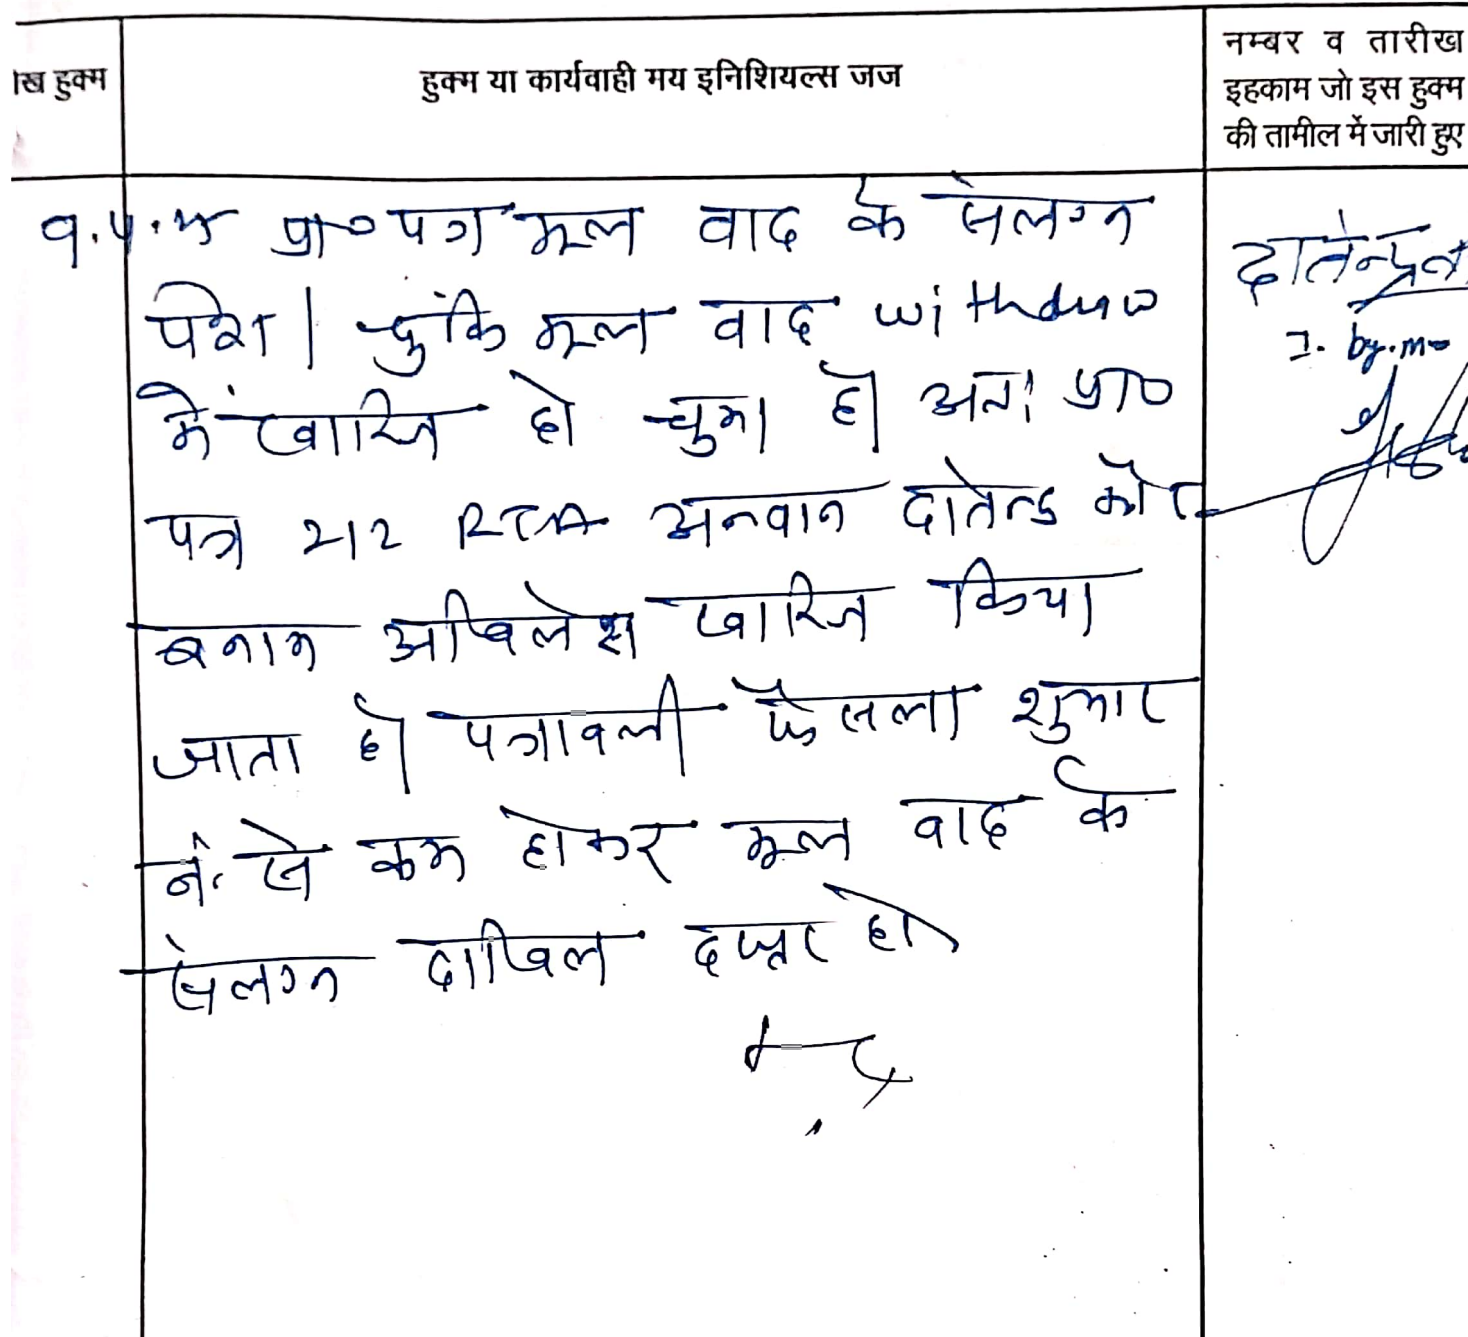 ख हुक्म
हुक्म या कार्यवाही मय इनिशियल्स जज
नम्बर व तारीख
इहकाम जो इस हुक्म
की तामील में जारी हुए
प्रा० पत्र मूल वाद के संलग्न
पेश। चुंकि मूल वाद withdraw
में खारिज हो चुका है अतः प्रा०
पत्र 212 RTA अनवान दातेन्द्र कौर
बनाम अखिलेश खारिज किया
जाता है। पत्रावली फैसला शुमार
नं. से कम होकर मूल वाद के
संलग्न दाखिल दफ्तर हो
I. by. me